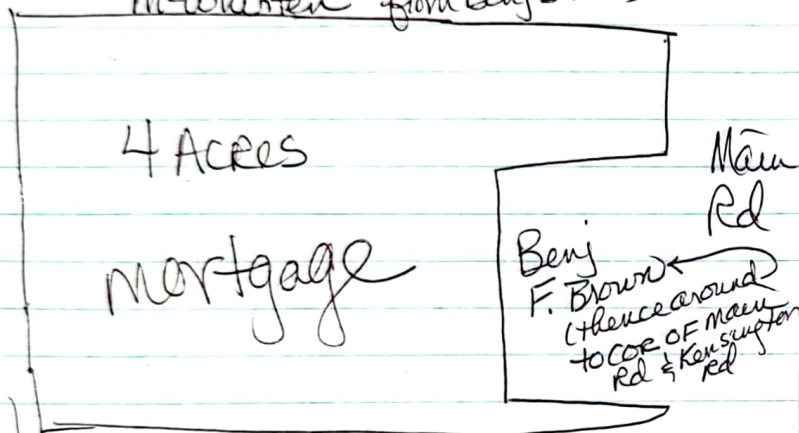 from Benj
4 ACRES
mortgage
Main
Rd
Benj
F. Brown
(thence around
to COR OF Main
Rd & Kensington
Rd